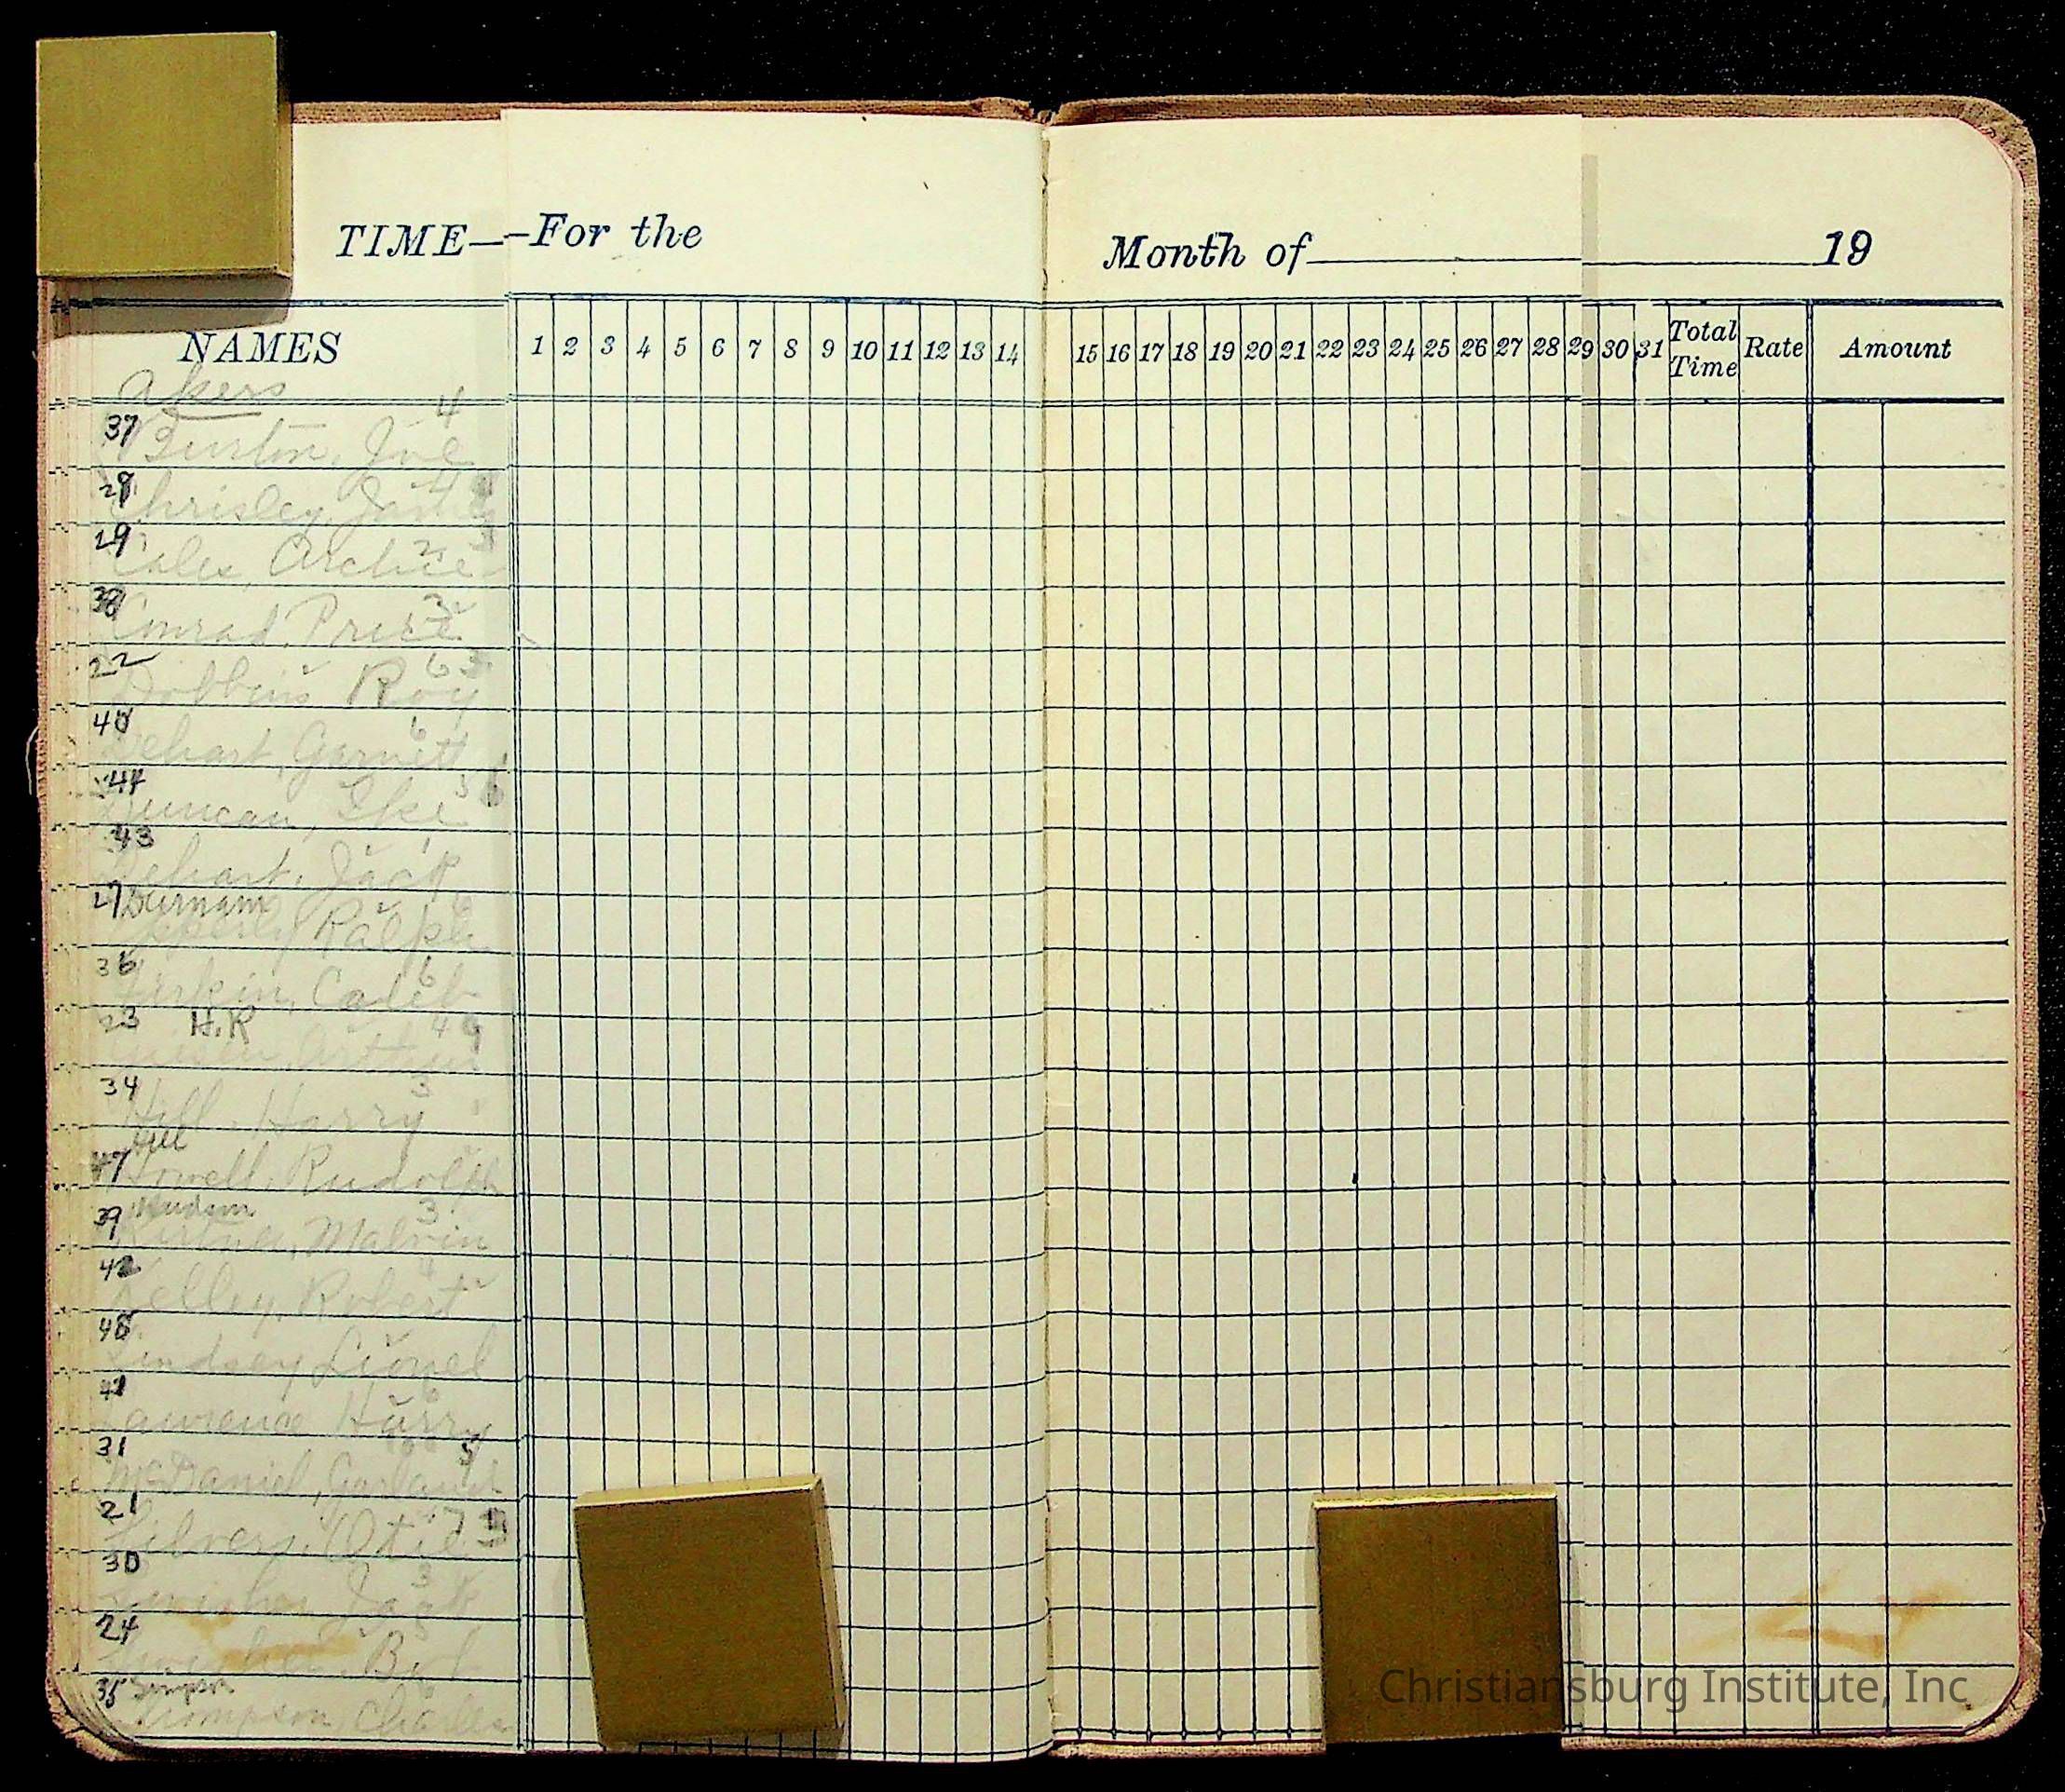 TIME—-For the Month of 19
NAMES 1 2 3 4 5 6 7 8 9 10 11 12 13 14 15 16 17 18 19 20 21 22 23 24 25 26 27 28 29 30 31 Total Time Rate Amount
Akers
37 4
Burton, Joe
Chrisley, James
19 2
Coles, Archie
3
Conrad, Price
22 6 3
Dobbins Roy
40 6
Dehart, Garnett
44 5 6
Duncan, Ike
43
Dehart, Jack
27 Burnam
Ralph
36 6
Caleb
23 H.R 4 9
Arthur
34 3
Hill Harry
Hill
47
Howell, Rudolph
39 Hudson 3
Malvin
42
Kelley, Robert
48
Lindsay Lionel
41 6
Lawrence Harry
31 5
McDaniel, Garland
21 7
Silvers, Otis
30 3
Jack
24
35 Simpson
Thompson, Charles
Christiansburg Institute, Inc